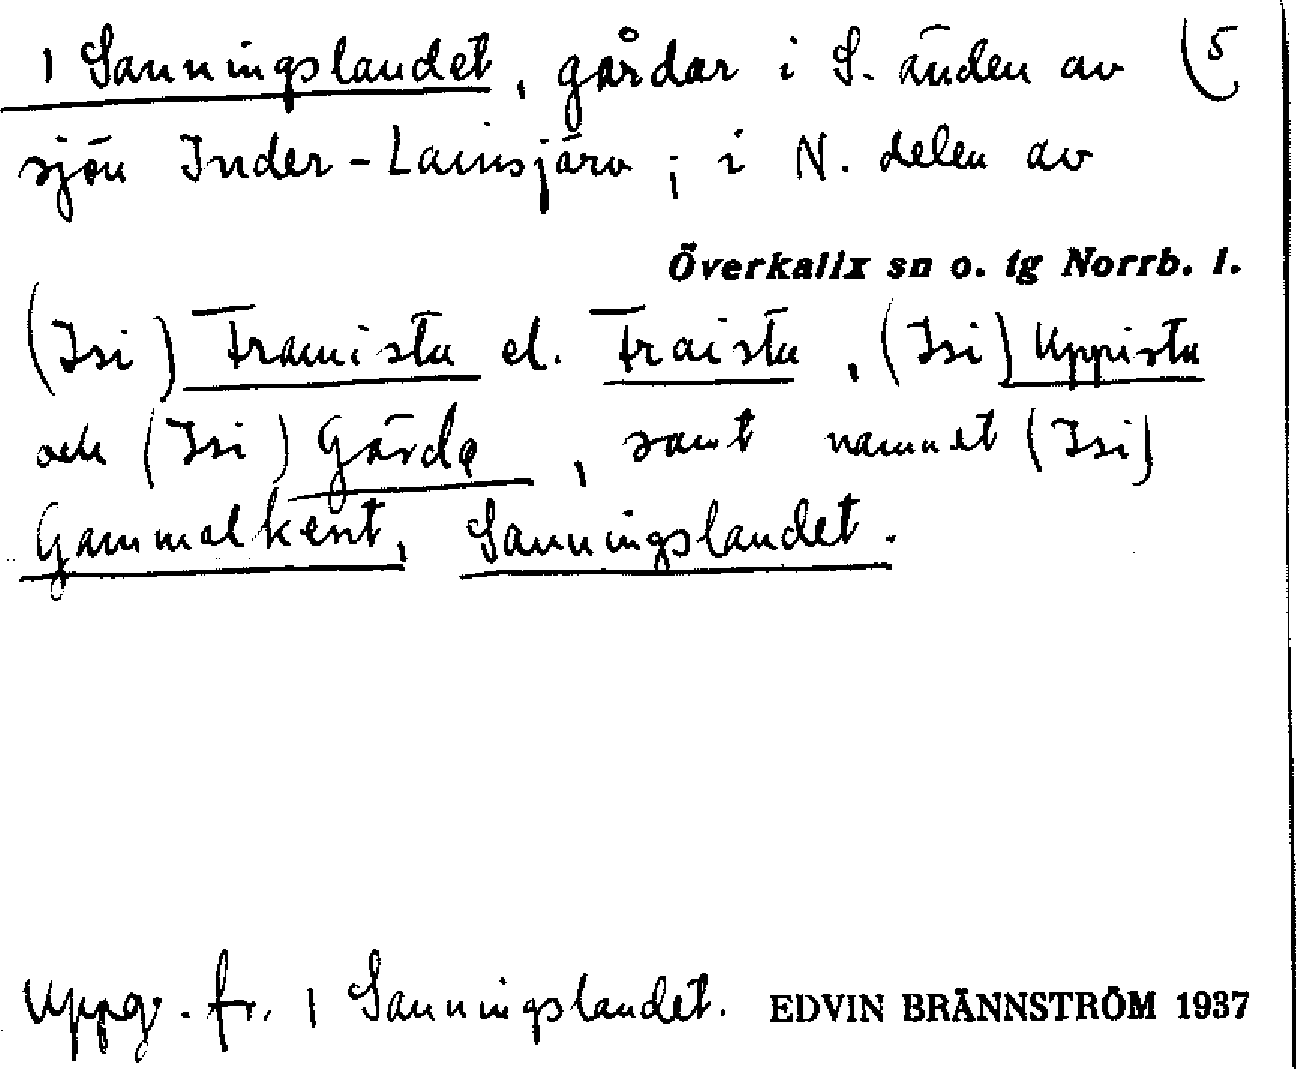 1 Sanningslandet, gårdar i S. änden av (5
sjön Inder-Lainsjärv; i N. delen av
Överkalix sn o. tg Norrb. l.
(Isi) Framista el. Fraista, (Isi) Uppista
och (Isi) Gärda, samt namnet (Isi)
Gammalkent, Sanningslandet.
Uppg. fr. 1 Sanningslandet. EDVIN BRÄNNSTRÖM 1937